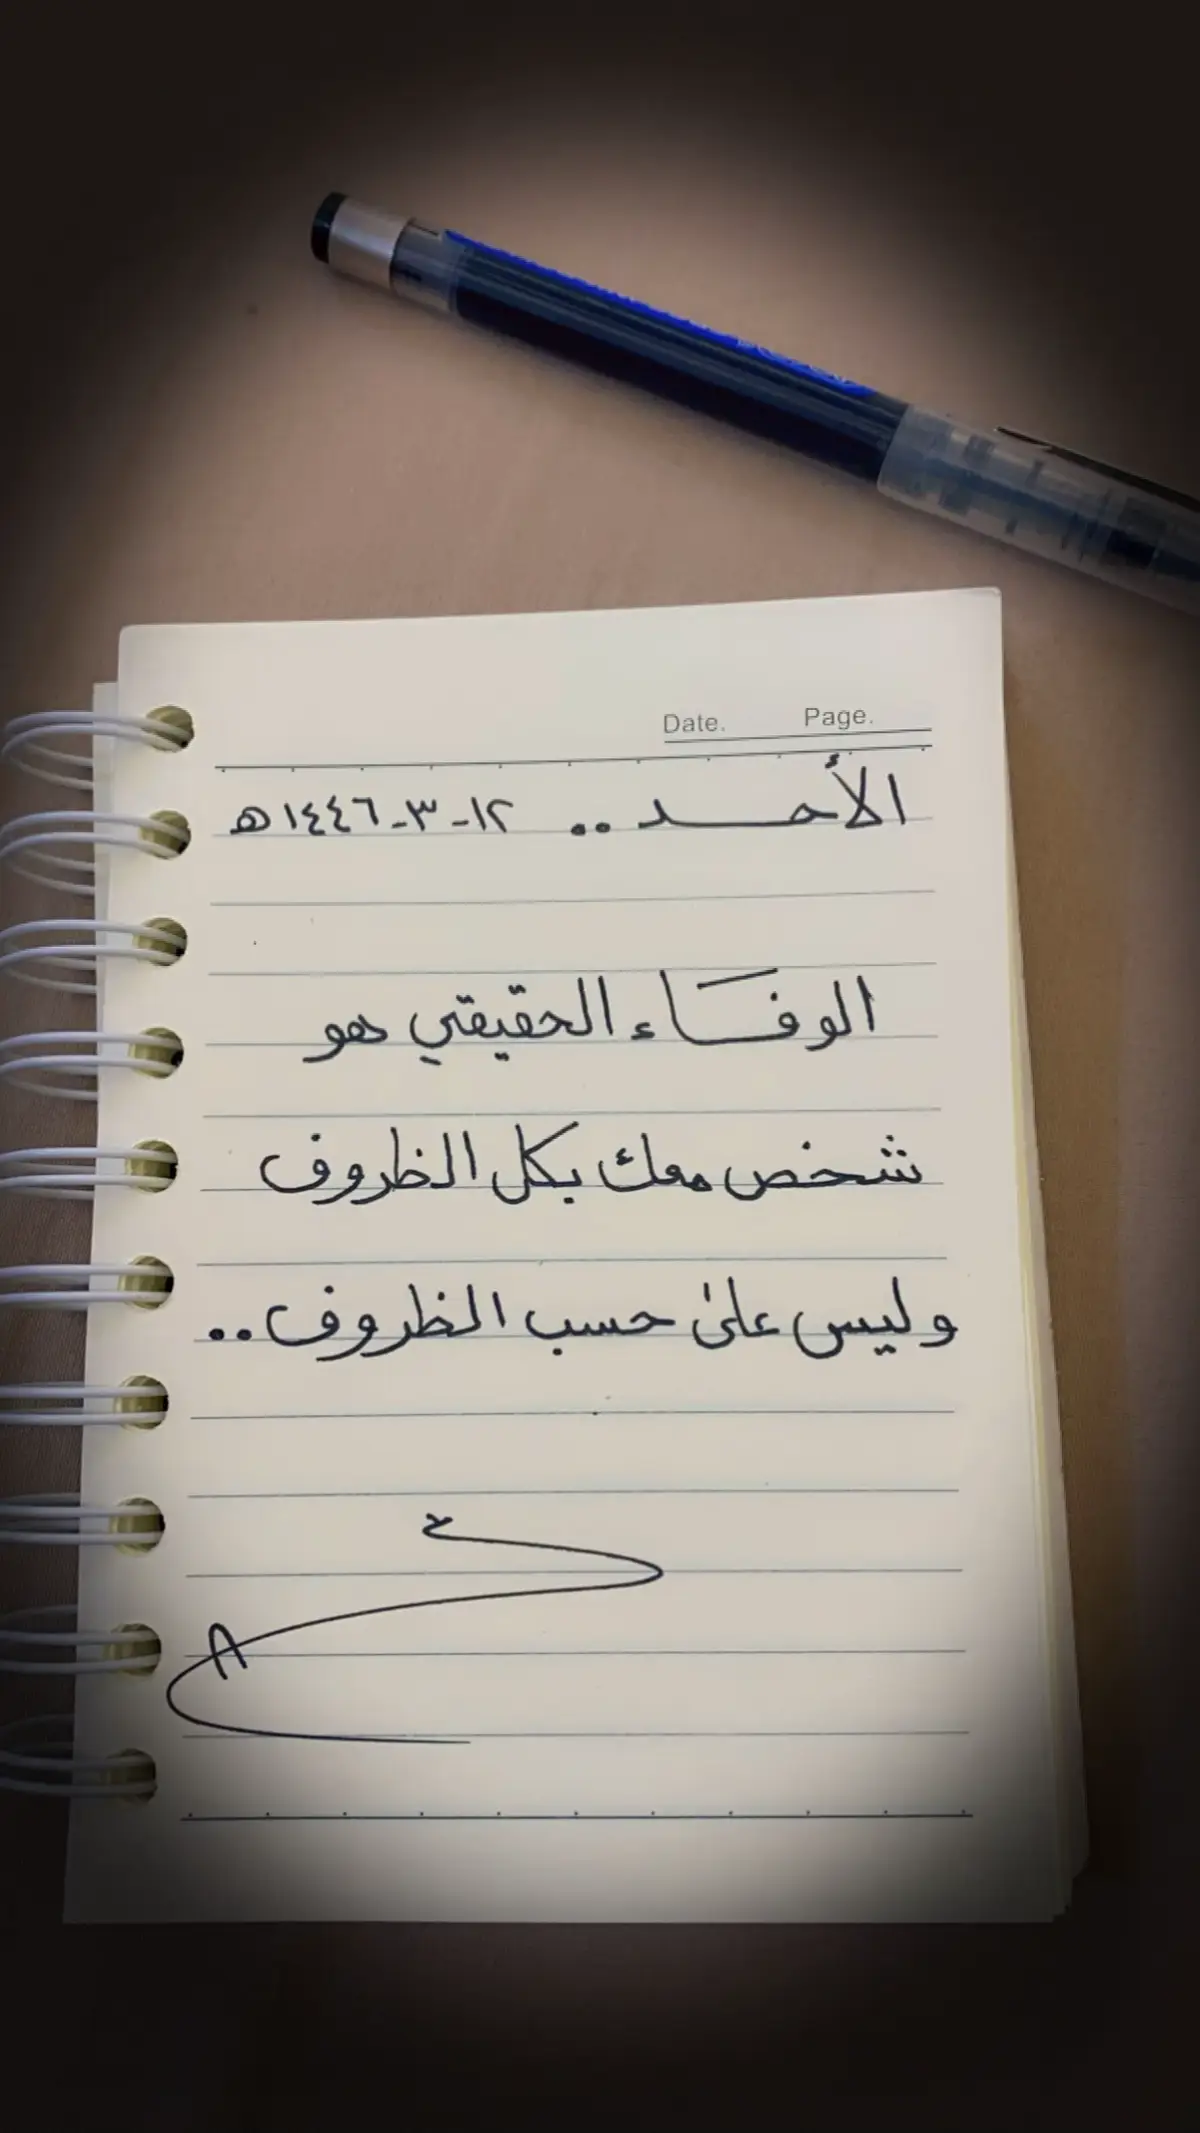 Date. Page.
الأحـــد .. ١٢-٣-١٤٤٦هـ
الوفــاء الحقيقي هو
شخص معك بكل الظروف
وليس على حسب الظروف..